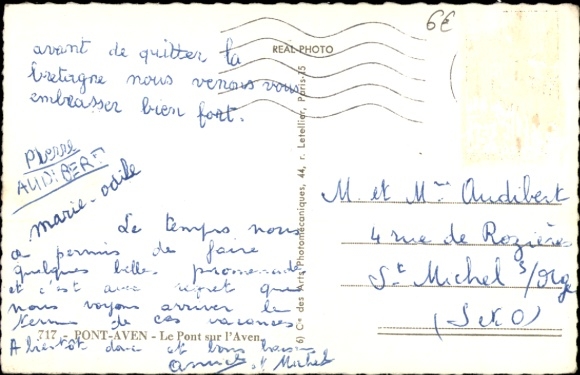 avant de quitter la
bretagne nous venons vous
embrasser bien fort.
Pierre
AUDIBERT
marie-odile
Le temps nous
a permis de faire
quelques belles promenades
et c'est avec regret que
nous voyons arriver le
terme de ces vacances
717 - PONT-AVEN - Le Pont sur l'Aven
A bientôt donc et bons baisers
St Michel
REAL PHOTO
6) Cie des Arts Photomécaniques, 44, r. Letellier, Paris-15
6€
M. et Mme Audibert
4 rue de Rozière
St Michel s/Orge
(S & O)